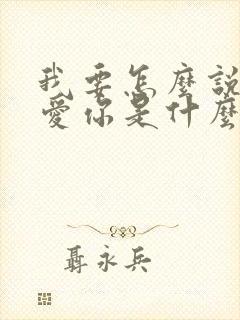 我要怎麼說
愛你是什麼
聶永兵